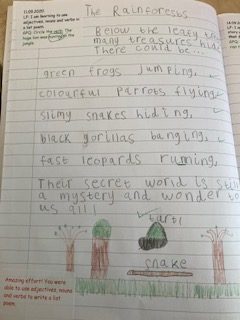 11.09.2020.
LP: I am learning to use adjectives, nouns and verbs in a list poem.
The Rainforests
Below the leafy
many treasures hide
There could be...
green frogs jumping,
colourful parrots flying,
slimy snakes hiding,
black gorillas banging,
fast leopards running,
Their secret world is still
a mystery and wonder to
us all!
turtl
snake
Amazing effort! You were
able to use adjectives, nouns
and verbs to write a list
poem.